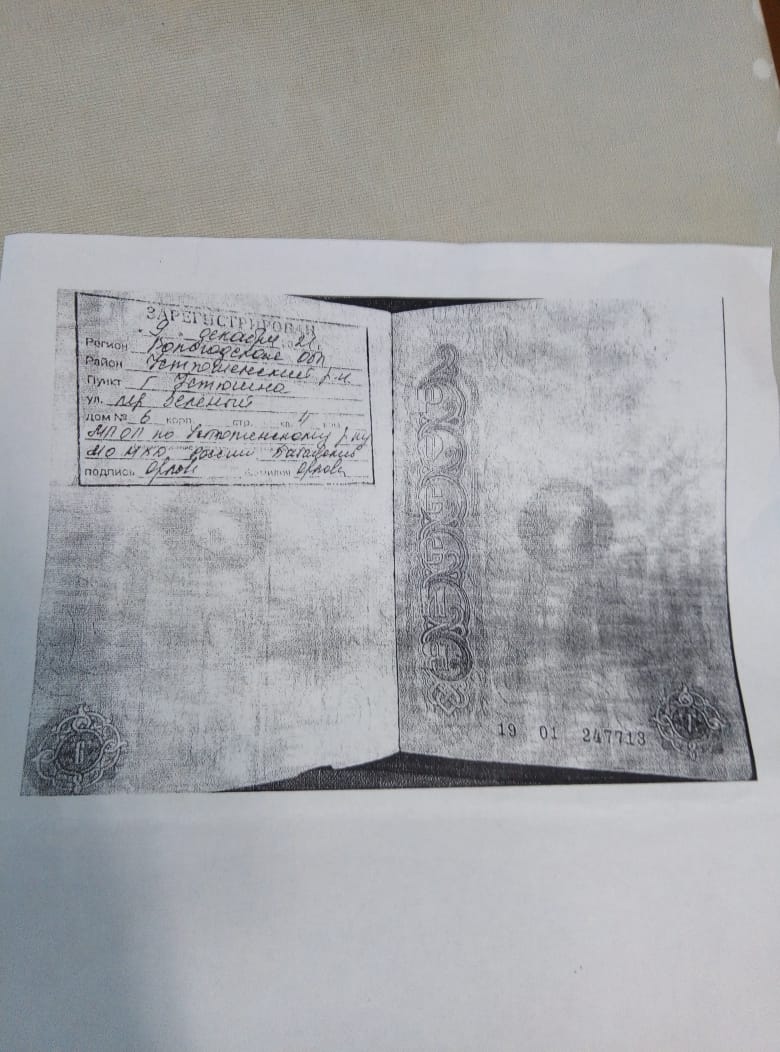 ЗАРЕГИСТРИРОВАН
"9" декабря
Регион Вологодская обл
Район Устюженский р-н
Пункт г Устюжна
ул. пер Зеленый
дом № 6 корп. стр. кв.
МПОП по Устюженскому р-ну
МО МВД России
подпись Орлов фамилия Орлов
6
19 01 247713
7